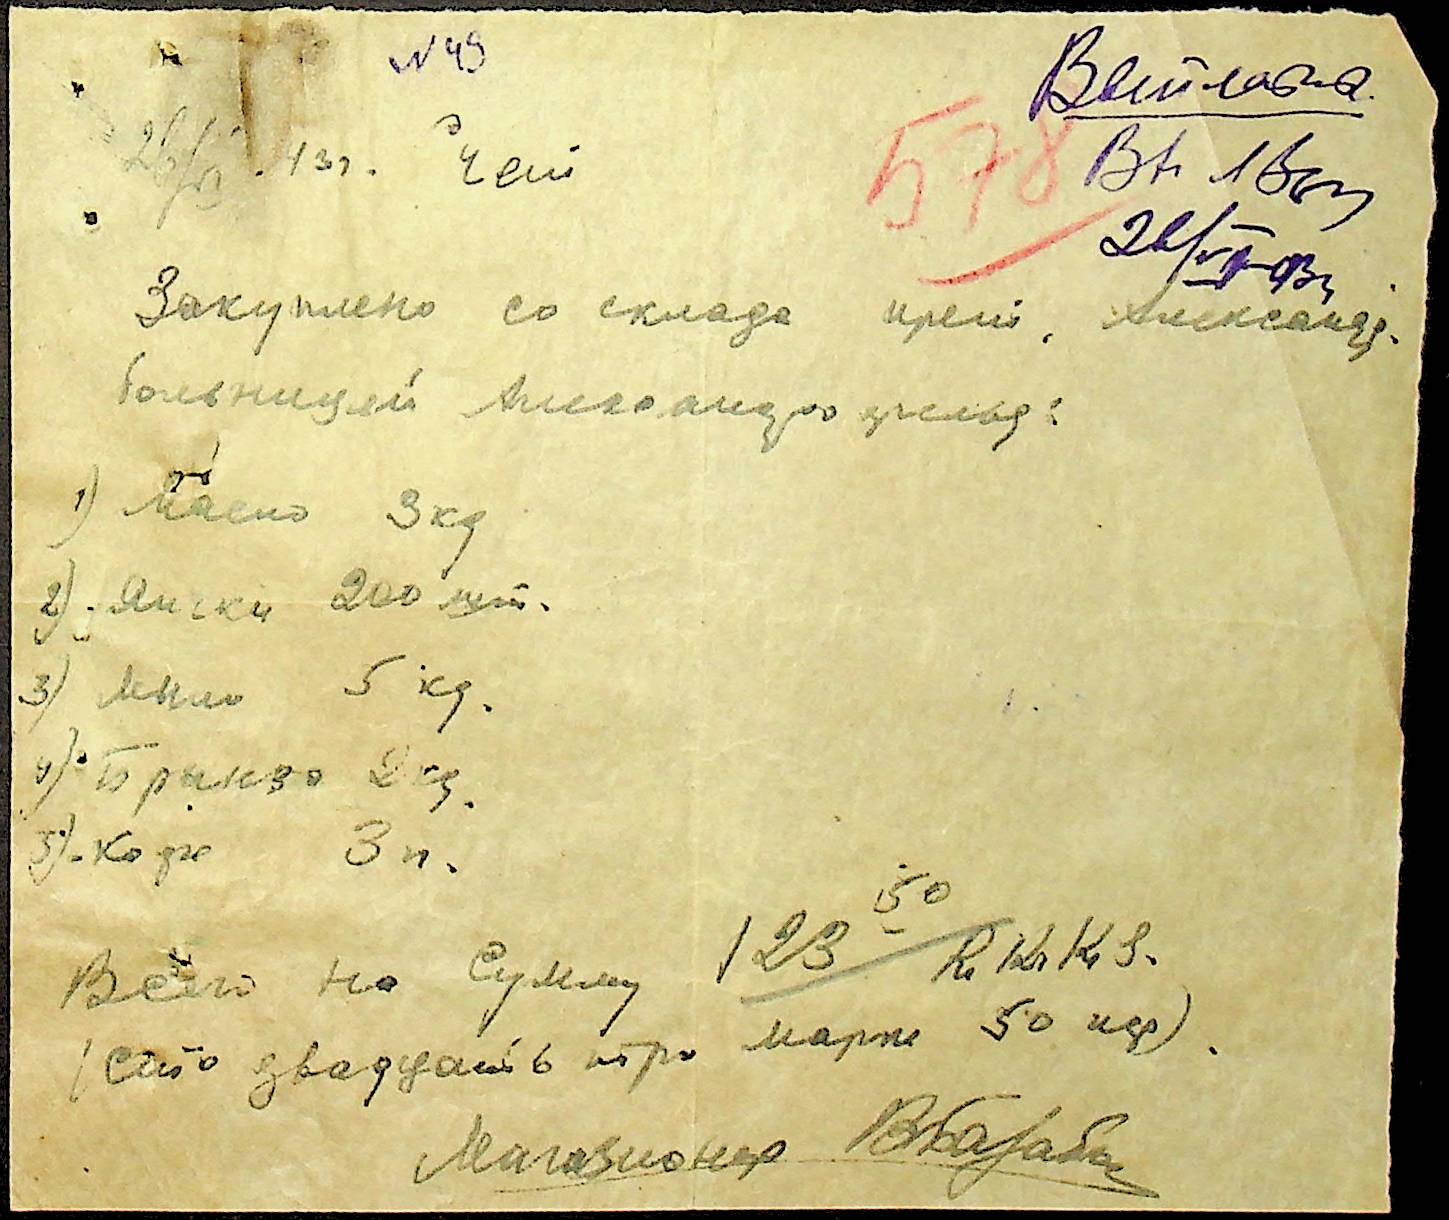 N 49
Выплата
578
26/VI 43г. Счет
Закуплено со склада прет. Александр.
больницей Александрфельд:
1) Масло 3 кг
2) Яички 200 шт.
3) Мыло 5 кг.
4) Брынза 2 кг.
5) Кофе 3 п.
Всего на сумму 123 50 R.K.K.S.
(сто двадцать три марки 50 пф).
Магазионер